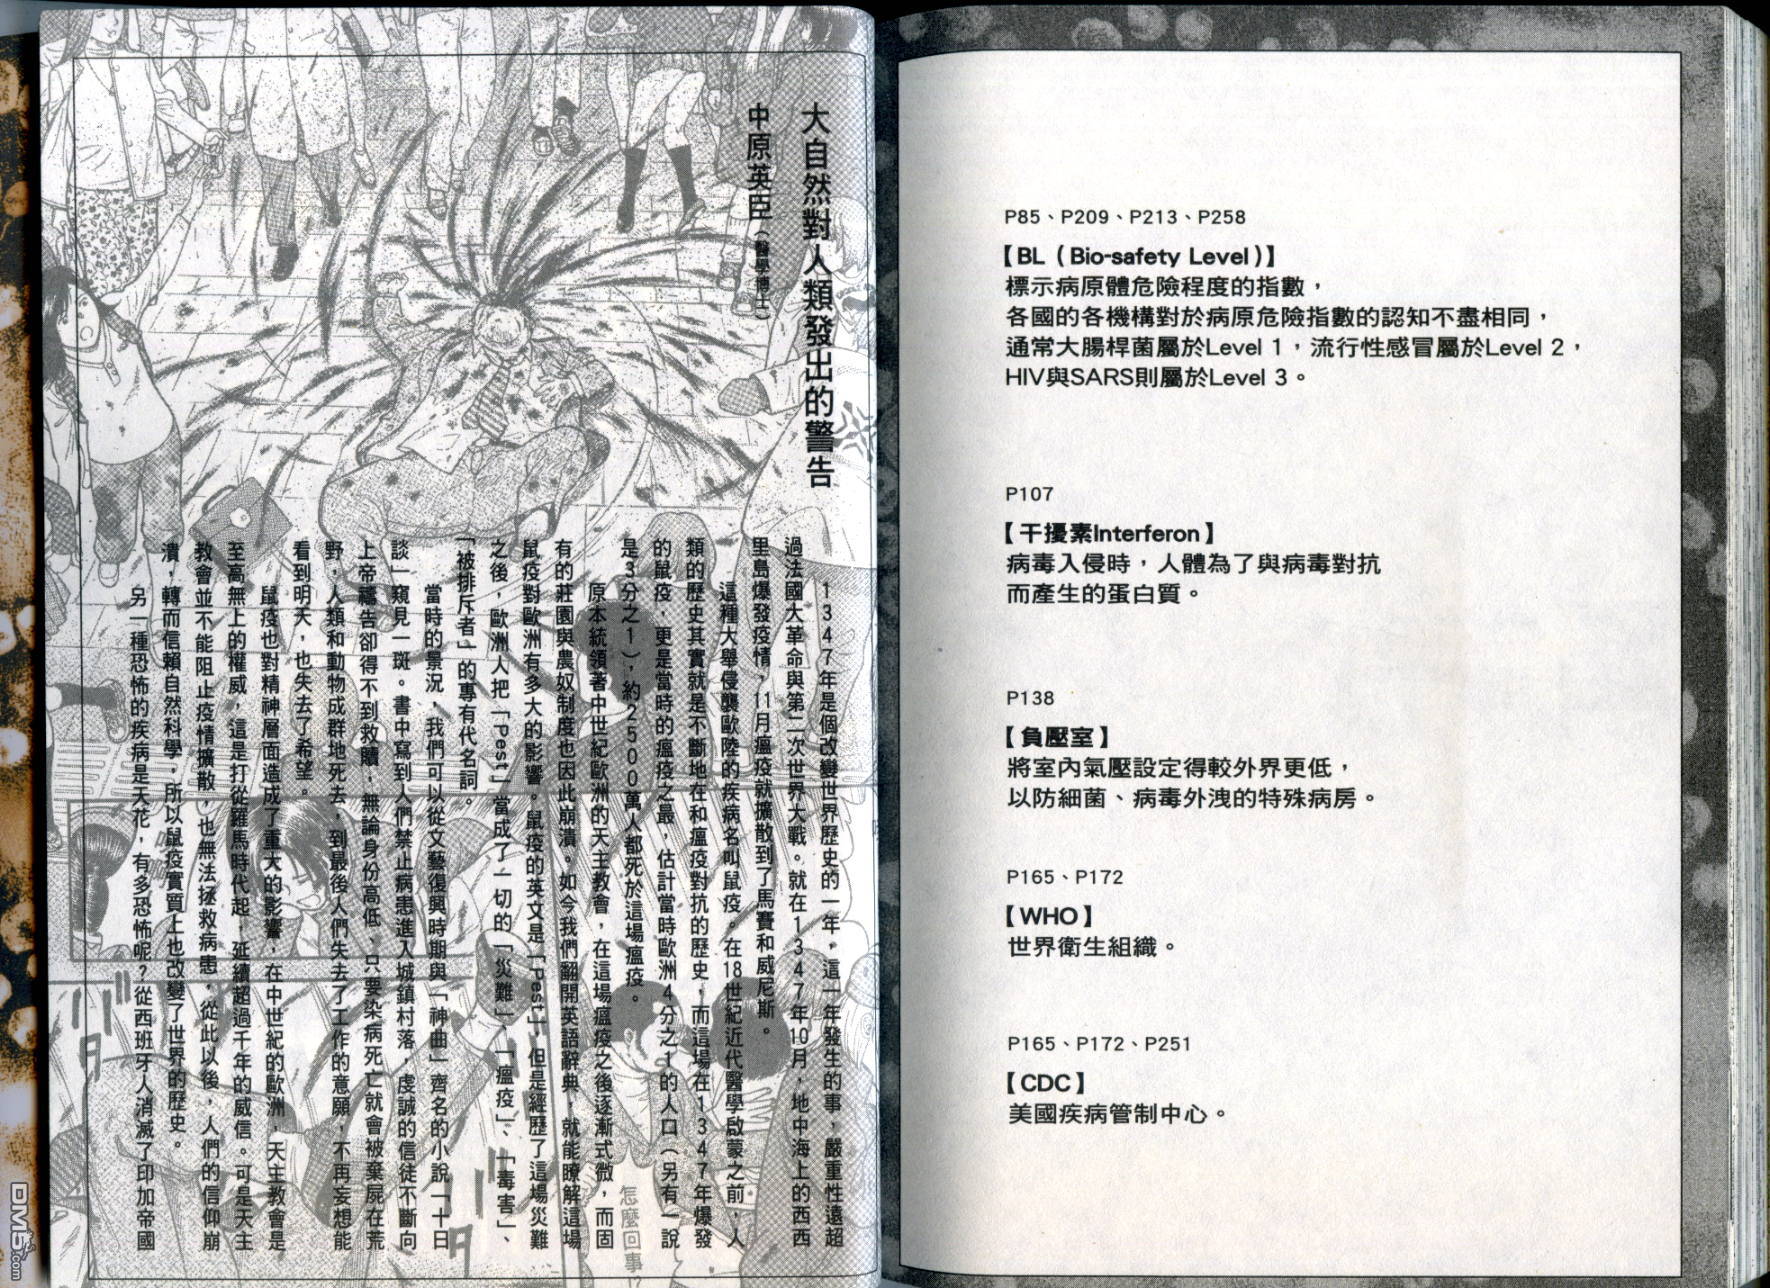 P85、P209、P213、P258
【BL（Bio-safety Level)】
標示病原體危險程度的指數，
各國的各機構對於病原危險指數的認知不盡相同，
通常大腸桿菌屬於Level 1，流行性感冒屬於Level 2，
HIV與SARS則屬於Level 3。
P107
【干擾素Interferon】
病毒入侵時，人體為了與病毒對抗
而產生的蛋白質。
P138
【負壓室】
將室內氣壓設定得較外界更低，
以防細菌、病毒外洩的特殊病房。
P165、P172
【WHO】
世界衛生組織。
P165、P172、P251
【CDC】
美國疾病管制中心。
大自然對人類發出的警告
中原英臣（醫學博士）
1347年是個改變世界歷史的一年，這一年發生的事，嚴重性遠超
過法國大革命與第二次世界大戰。就在1347年10月，地中海上的西西
里島爆發疫情，11月瘟疫就擴散到了馬賽和威尼斯。
這種大舉侵襲歐陸的疾病名叫鼠疫。在18世紀近代醫學啟蒙之前，人
類的歷史其實就是不斷地在和瘟疫對抗的歷史，而這場在1347年爆發
的鼠疫，更是當時的瘟疫之最，估計當時歐洲4分之1的人口（另有一說
是3分之1），約2500萬人都死於這場瘟疫。
原本統領著中世紀歐洲的天主教會，在這場瘟疫之後逐漸式微，而固
有的莊園與農奴制度也因此崩潰。如今我們翻開英語辭典，就能瞭解這場
鼠疫對歐洲有多大的影響。鼠疫的英文是「Pest」，但是經歷了這場災難
之後，歐洲人把「Pest」當成了一切的「災難」、「瘟疫」、「毒害」、
「被排斥者」的專有代名詞。
當時的景況，我們可以從文藝復興時期與「神曲」齊名的小說「十日
談」窺見一斑。書中寫到人們禁止病患進入城鎮村落，虔誠的信徒不斷向
上帝禱告卻得不到救贖，無論身份高低、只要染病死亡就會被棄屍在荒
野，人類和動物成群地死去，到最後人們失去了工作的意願，不再妄想能
看到明天，也失去了希望。
鼠疫也對精神層面造成了重大的影響，在中世紀的歐洲，天主教會是
至高無上的權威，這是打從羅馬時代起，延續超過千年的威信。可是天主
教會並不能阻止疫情擴散，也無法拯救病患，從此以後，人們的信仰崩
潰，轉而信賴自然科學，所以鼠疫實質上也改變了世界的歷史。
另一種恐怖的疾病是天花，有多恐怖呢？從西班牙人消滅了印加帝國
怎麼回事!?
DM5.com